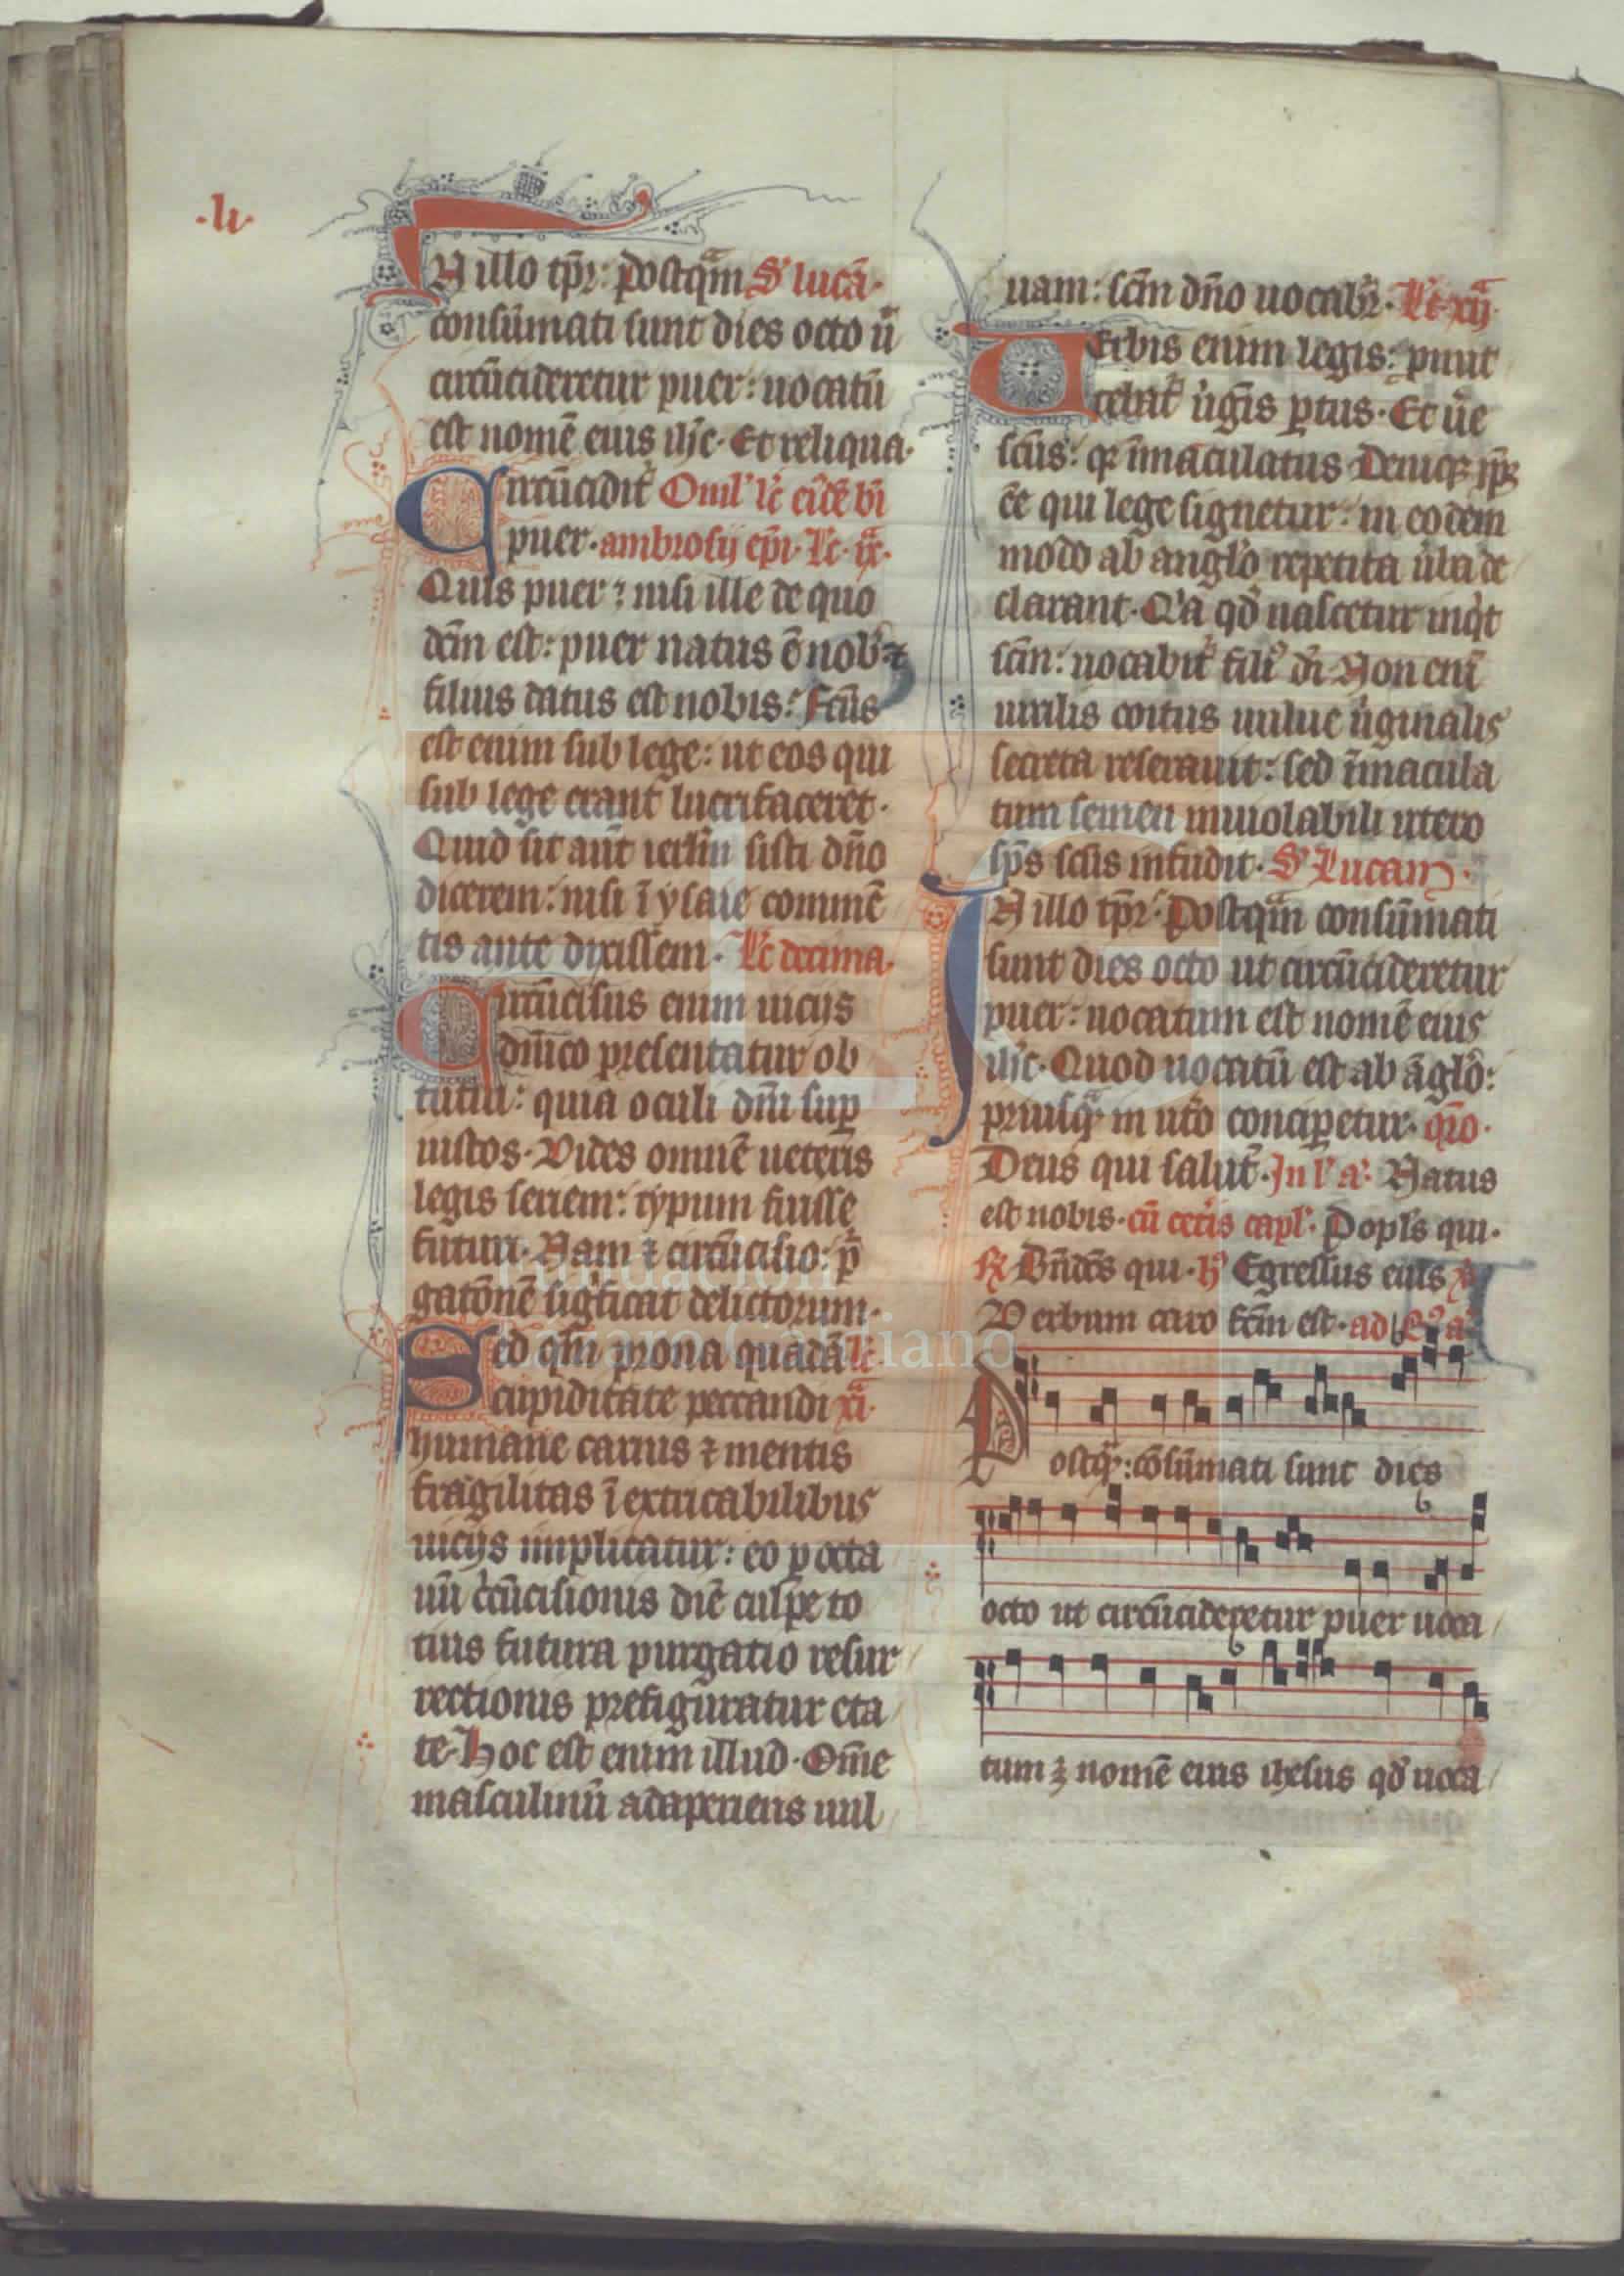 ·li·
IN illo tp̄r: postqᷓm S' lucā·
consūmati sunt dies octo ūͣ
circūcideretur puer: uocatū
est nomē eius ih̄c· Et reliqua·
Circūcidit͛ Oml' l'c̄ eiꝰdē bt̄i
puer· ambrosij ep̄i· L'c̄· ix̄ͣ·
Quis puer? nisi ille de quo
dc̄m est: puer natus ē nob' ⁊
filius datus est nobis: fc̄us
est enim sub lege: ut eos qui
sub lege erant lucrifaceret·
Quid sit aūt ierl̄m sisti dn̄o
dicerem: nisi ī ysaie commē
tis ante dixissem· L'c̄ decima·
Circūcisus enim uicijs
dn̄ico presentatur ob
tutui: quia oculi dn̄i suꝑ
iustos· Vides omnē ueteris
legis seriem: typum fuisse
futuri· Nam ⁊ circūcisio: p̄
gatōnē sigͥficat delictorum·
Sed qm̄ prona quadā L'c̄
cupiditate peccandi xīͣ·
humane carnis ⁊ mentis
fragilitas ī extricabilibus
uicijs implicatur: eo ꝑ octa
uū cͥcūcisionis diē culpe to
tius futura purgatio resur
rectionis prefiguratur eta
te· Hoc est enim illud· Om̄e
masculinū adaperiens uul
uam: scm̄ dn̄o uocabr̄· L'c̄ xij̄ͣ·
Verbis enim legis: ꝓmit
tebat͛ uͥgīs ꝑtus· Et ūe
scūs: qꝛ īmaculatus· Deniqꝫ ip̄ꝫ
ēe qui lege signetur: in eodem
modo ab anglo repetita ūba de
clarant· Qͥa qd̄ nascetur inqͥt
scm̄: uocabit͛ filiꝰ dī· Non enī
uirilis coitus uulue uͥginalis
secreta reserauit: sed īmacula
tum semen inuiolabili utero
sp̄s sc̄us infudit· S' Lucam·
IN illo tp̄r· Postqᷓm consūmati
sunt dies octo ut circūcideretur
puer: uocatum est nomē eius
ih̄c· Quod uocatū est ab āglo:
priusqᷓ in utō conciꝑetur· qr̄o·
Deus qui salut̄· In l' a· Natus
est nobis· cū cet͛is capl'· Popl's qui·
℟ Bn̄dc̄s qui· hꝰ Egressus eius ℣
Verbum caro fc̄m est· ad bꝰ a
Postqᷓ: cōsūmati sunt dies
octo ut circūcideretur puer uoca
tum ē nomē eius ihesus qd̄ uoca